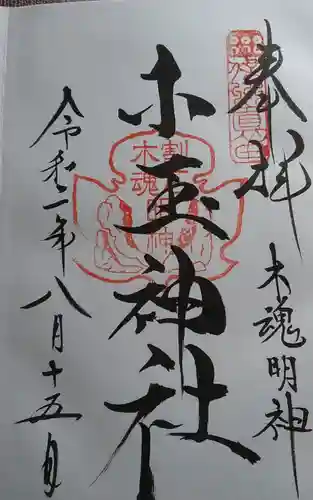 奉拝
木魂明神
木玉神社
令和二年八月十五日
割
木魂
明神